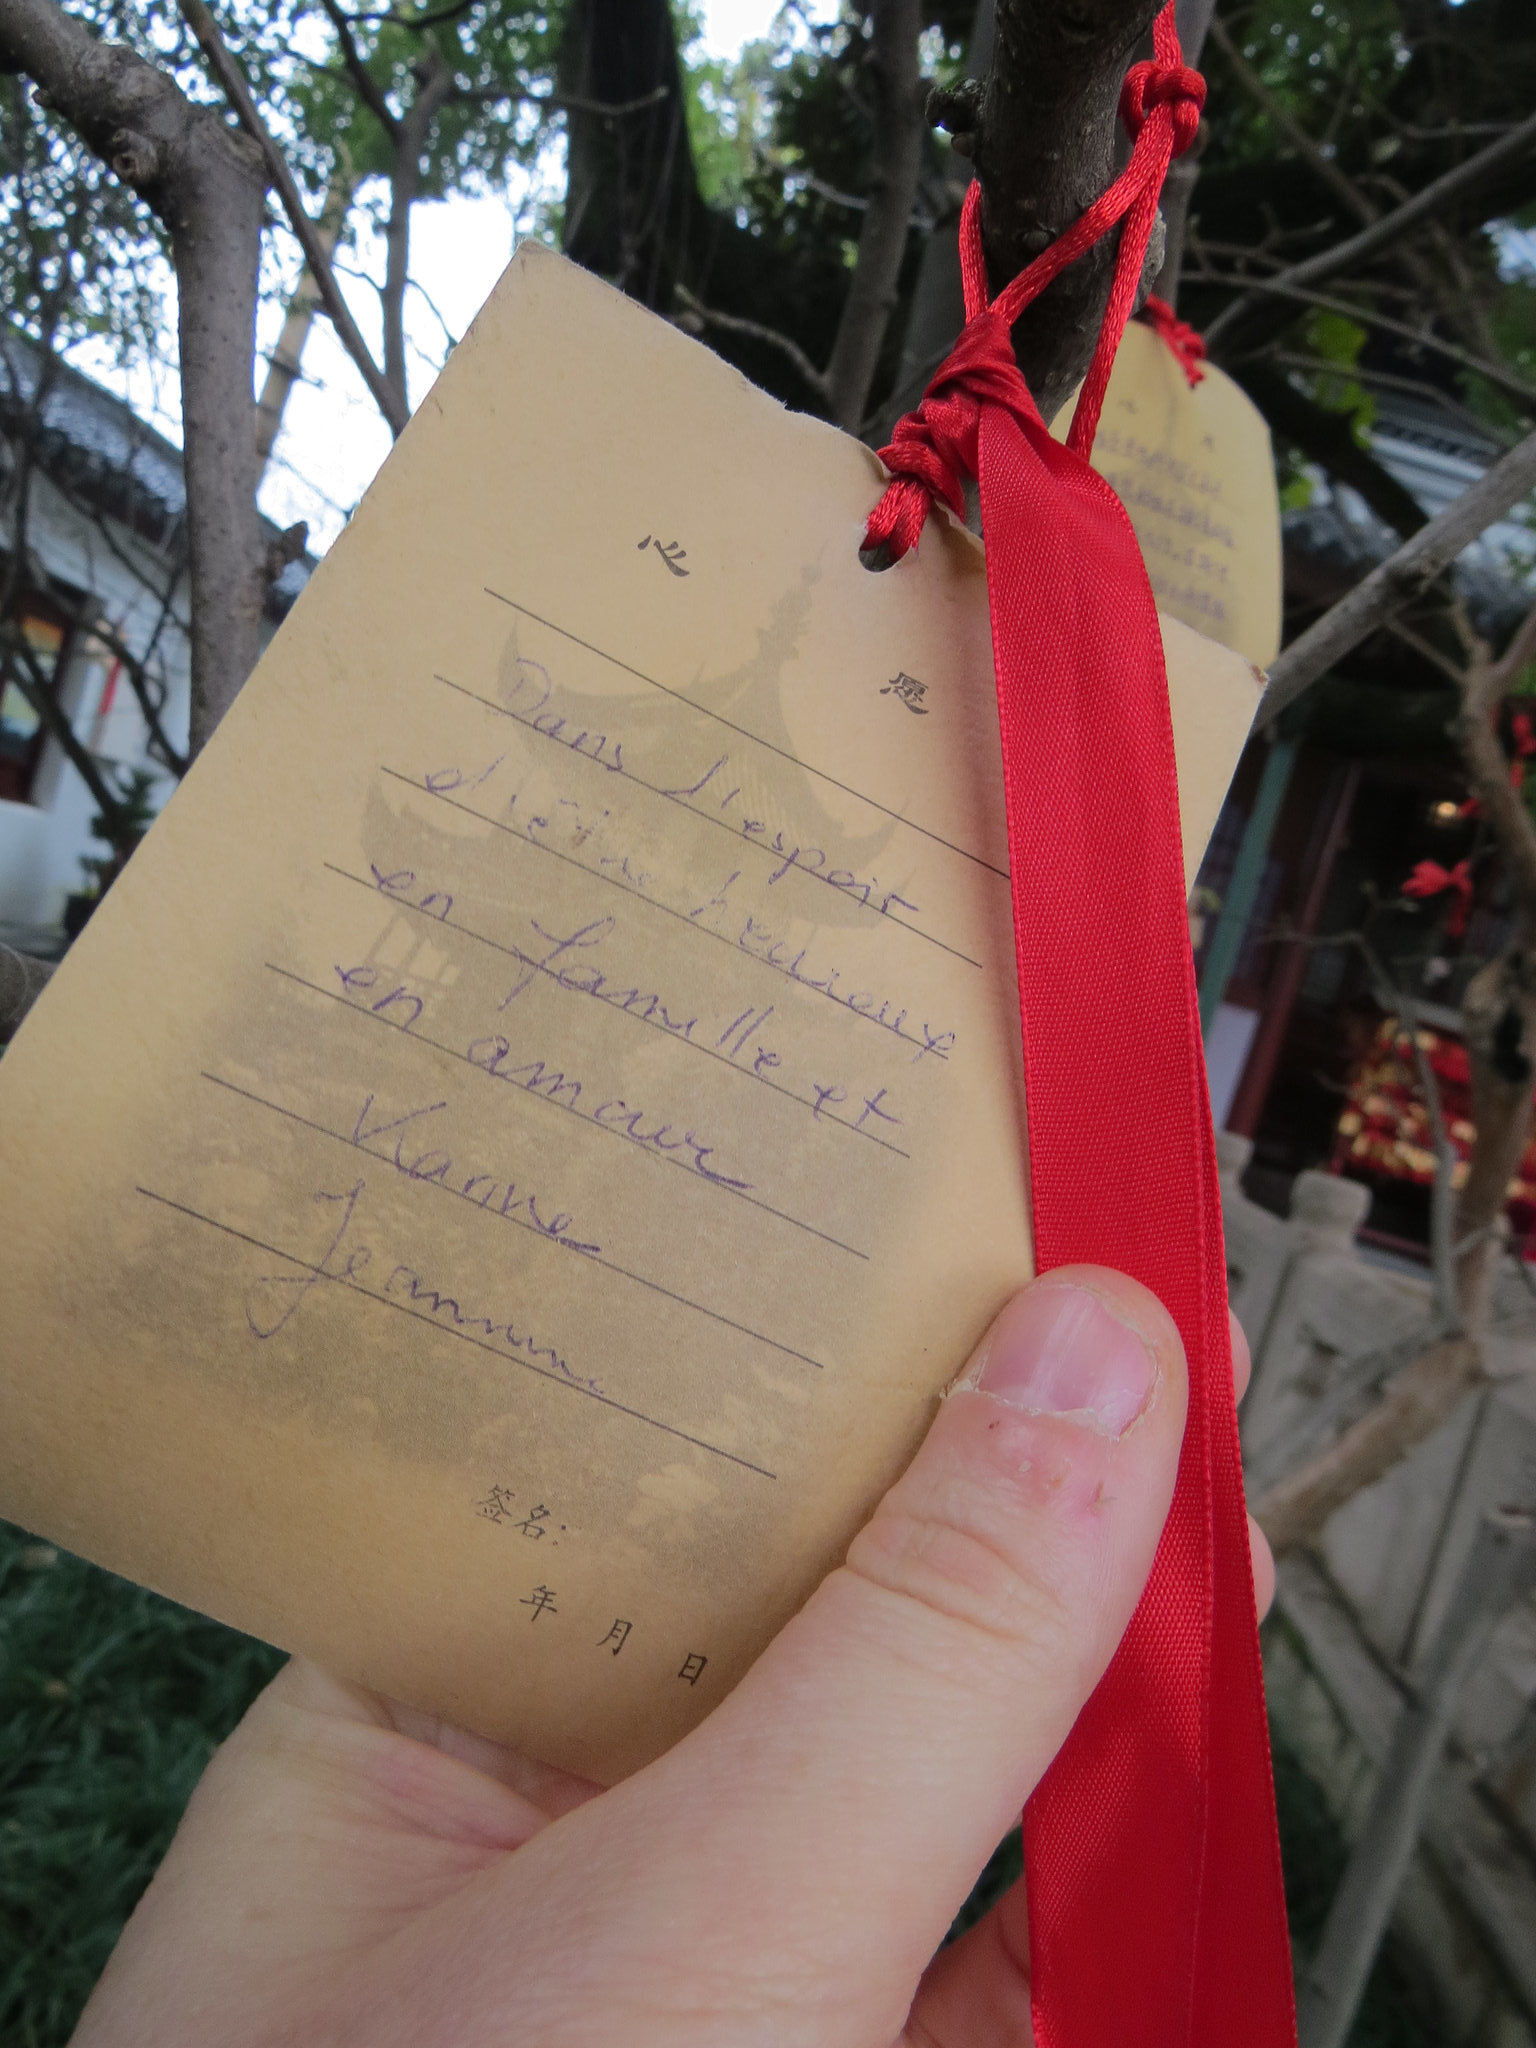 心 愿
Dans l'espoir
d'être heureux
en famille et
en amour
Karine
签名:
年 月 日